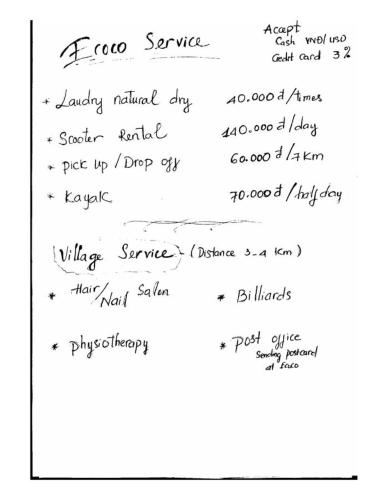 Ecoco Service
Accept
Cash VNĐ/USD
Credit Card 3%
* Laudry natural dry 40.000 đ/times
* Scooter Rental 140.000 đ/day
* Pick up / Drop off 60.000 đ/7km
* Kayak 70.000 đ/half day
Village Service - (Distance 3-4 km)
* Hair/Nail Salon
* Billiards
* physiotherapy
* Post office
Sending postcard
at Ecoco